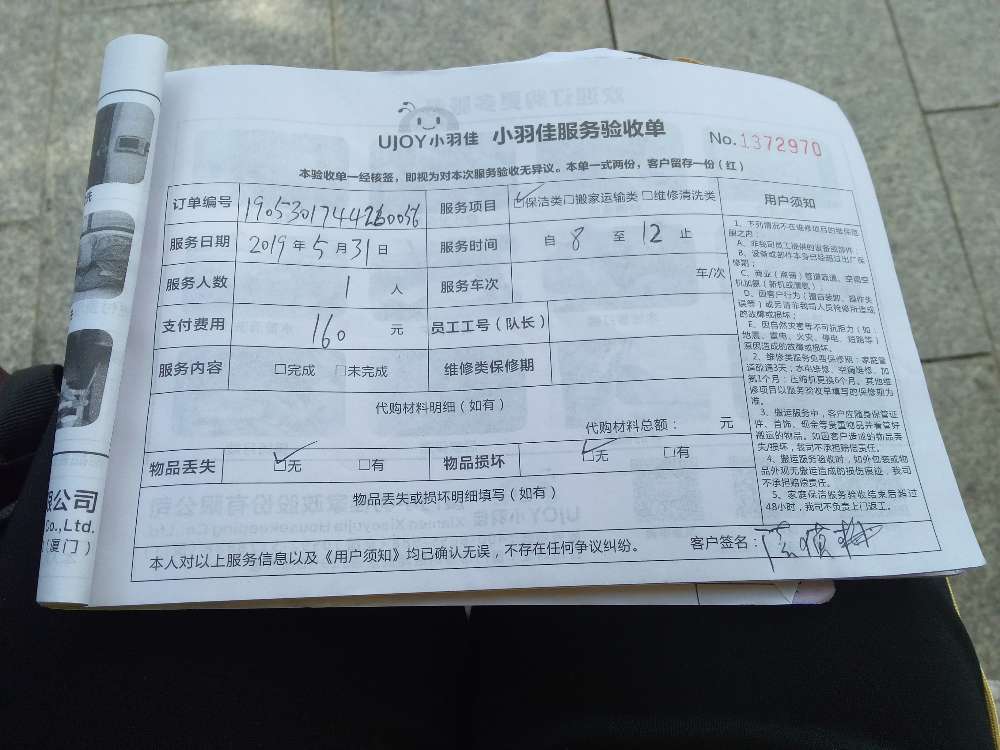 UJOY小羽佳 小羽佳服务验收单 No.1372970
本验收单一经核签，即视为对本次服务验收无异议。本单一式两份，客户留存一份（红）
订单编号 服务项目 ☑保洁类□搬家运输类□维修清洗类 用户须知
服务日期 2019年5月31日 服务时间 自8至12止
服务人数 1人 服务车次 车/次
支付费用 160元 员工工号（队长）
服务内容 □完成 □未完成 维修类保修期
代购材料明细（如有）
代购材料总额： 元
物品丢失 ☑无 □有 物品损坏 ☑无 □有
物品丢失或损坏明细填写（如有）
本人对以上服务信息以及《用户须知》均已确认无误，不存在任何争议纠纷。 客户签名：
1、下列情况不在维修项目的维保范
围之内：
A、非我司员工提供的设备或部件；
B、设备或部件本身已经超过出厂保
修期；
C、商业（店铺）管道疏通、空调空
机加氨（新机或漂氨）
D、因客户行为（擅自装卸、操作失
误等）或另请非我司人员抢修所造成
的故障或损坏；
E、因自然灾害等不可抗拒力（如：
地震、雷电、火灾、停电、短路等）
原因造成的故障或损坏。
2、维修类服务免费保修期：家庭管
道疏通3天；水电维修、空调维修、加
氨1个月；压缩机更换6个月。其他维
修项目以服务验收单填写的保修期为
准。
3、搬运服务中，客户应随身保管证
件、首饰、现金等贵重物品并看管好
搬运的物品。如因客户造成的物品丢
失/损坏，我司不承担赔偿责任。
4、搬运服务验收时，如外包装或物
品外观无搬运造成的损伤痕迹，我司
不承担赔偿责任。
5、家庭保洁服务验收结束后超过
48小时，我司不负责上门返工。
限公司
Co.,Ltd.
（厦门）